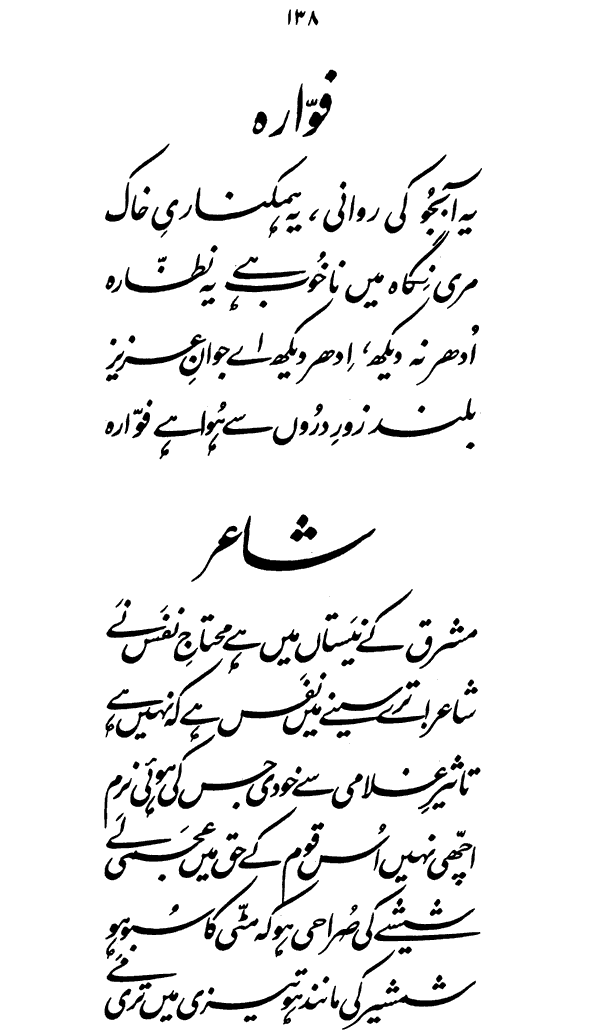 ۱۳۸
فوّارہ
یہ آبجُو کی روانی، یہ ہمکناریِ خاک
مری نِگاہ میں ناخُوب ہے یہ نظّارہ
اُدھر نہ دیکھ، اِدھر دیکھ اے جوانِ عزیز
بلند زورِ درُوں سے ہُوا ہے فوّارہ
شاعر
مشرق کے نَیَستاں میں ہے محتاجِ نفَس نَے
شاعر! ترے سینے میں نفَس ہے کہ نہیں ہے
تاثیرِ غلامی سے خودی جس کی ہوئی نرم
اچھّی نہیں اُس قوم کے حق میں عجَمی لَے
شیشے کی صُراحی ہو کہ مٹّی کا سبُو ہو
شمشیر کی مانند ہو تیزی میں تری مَے